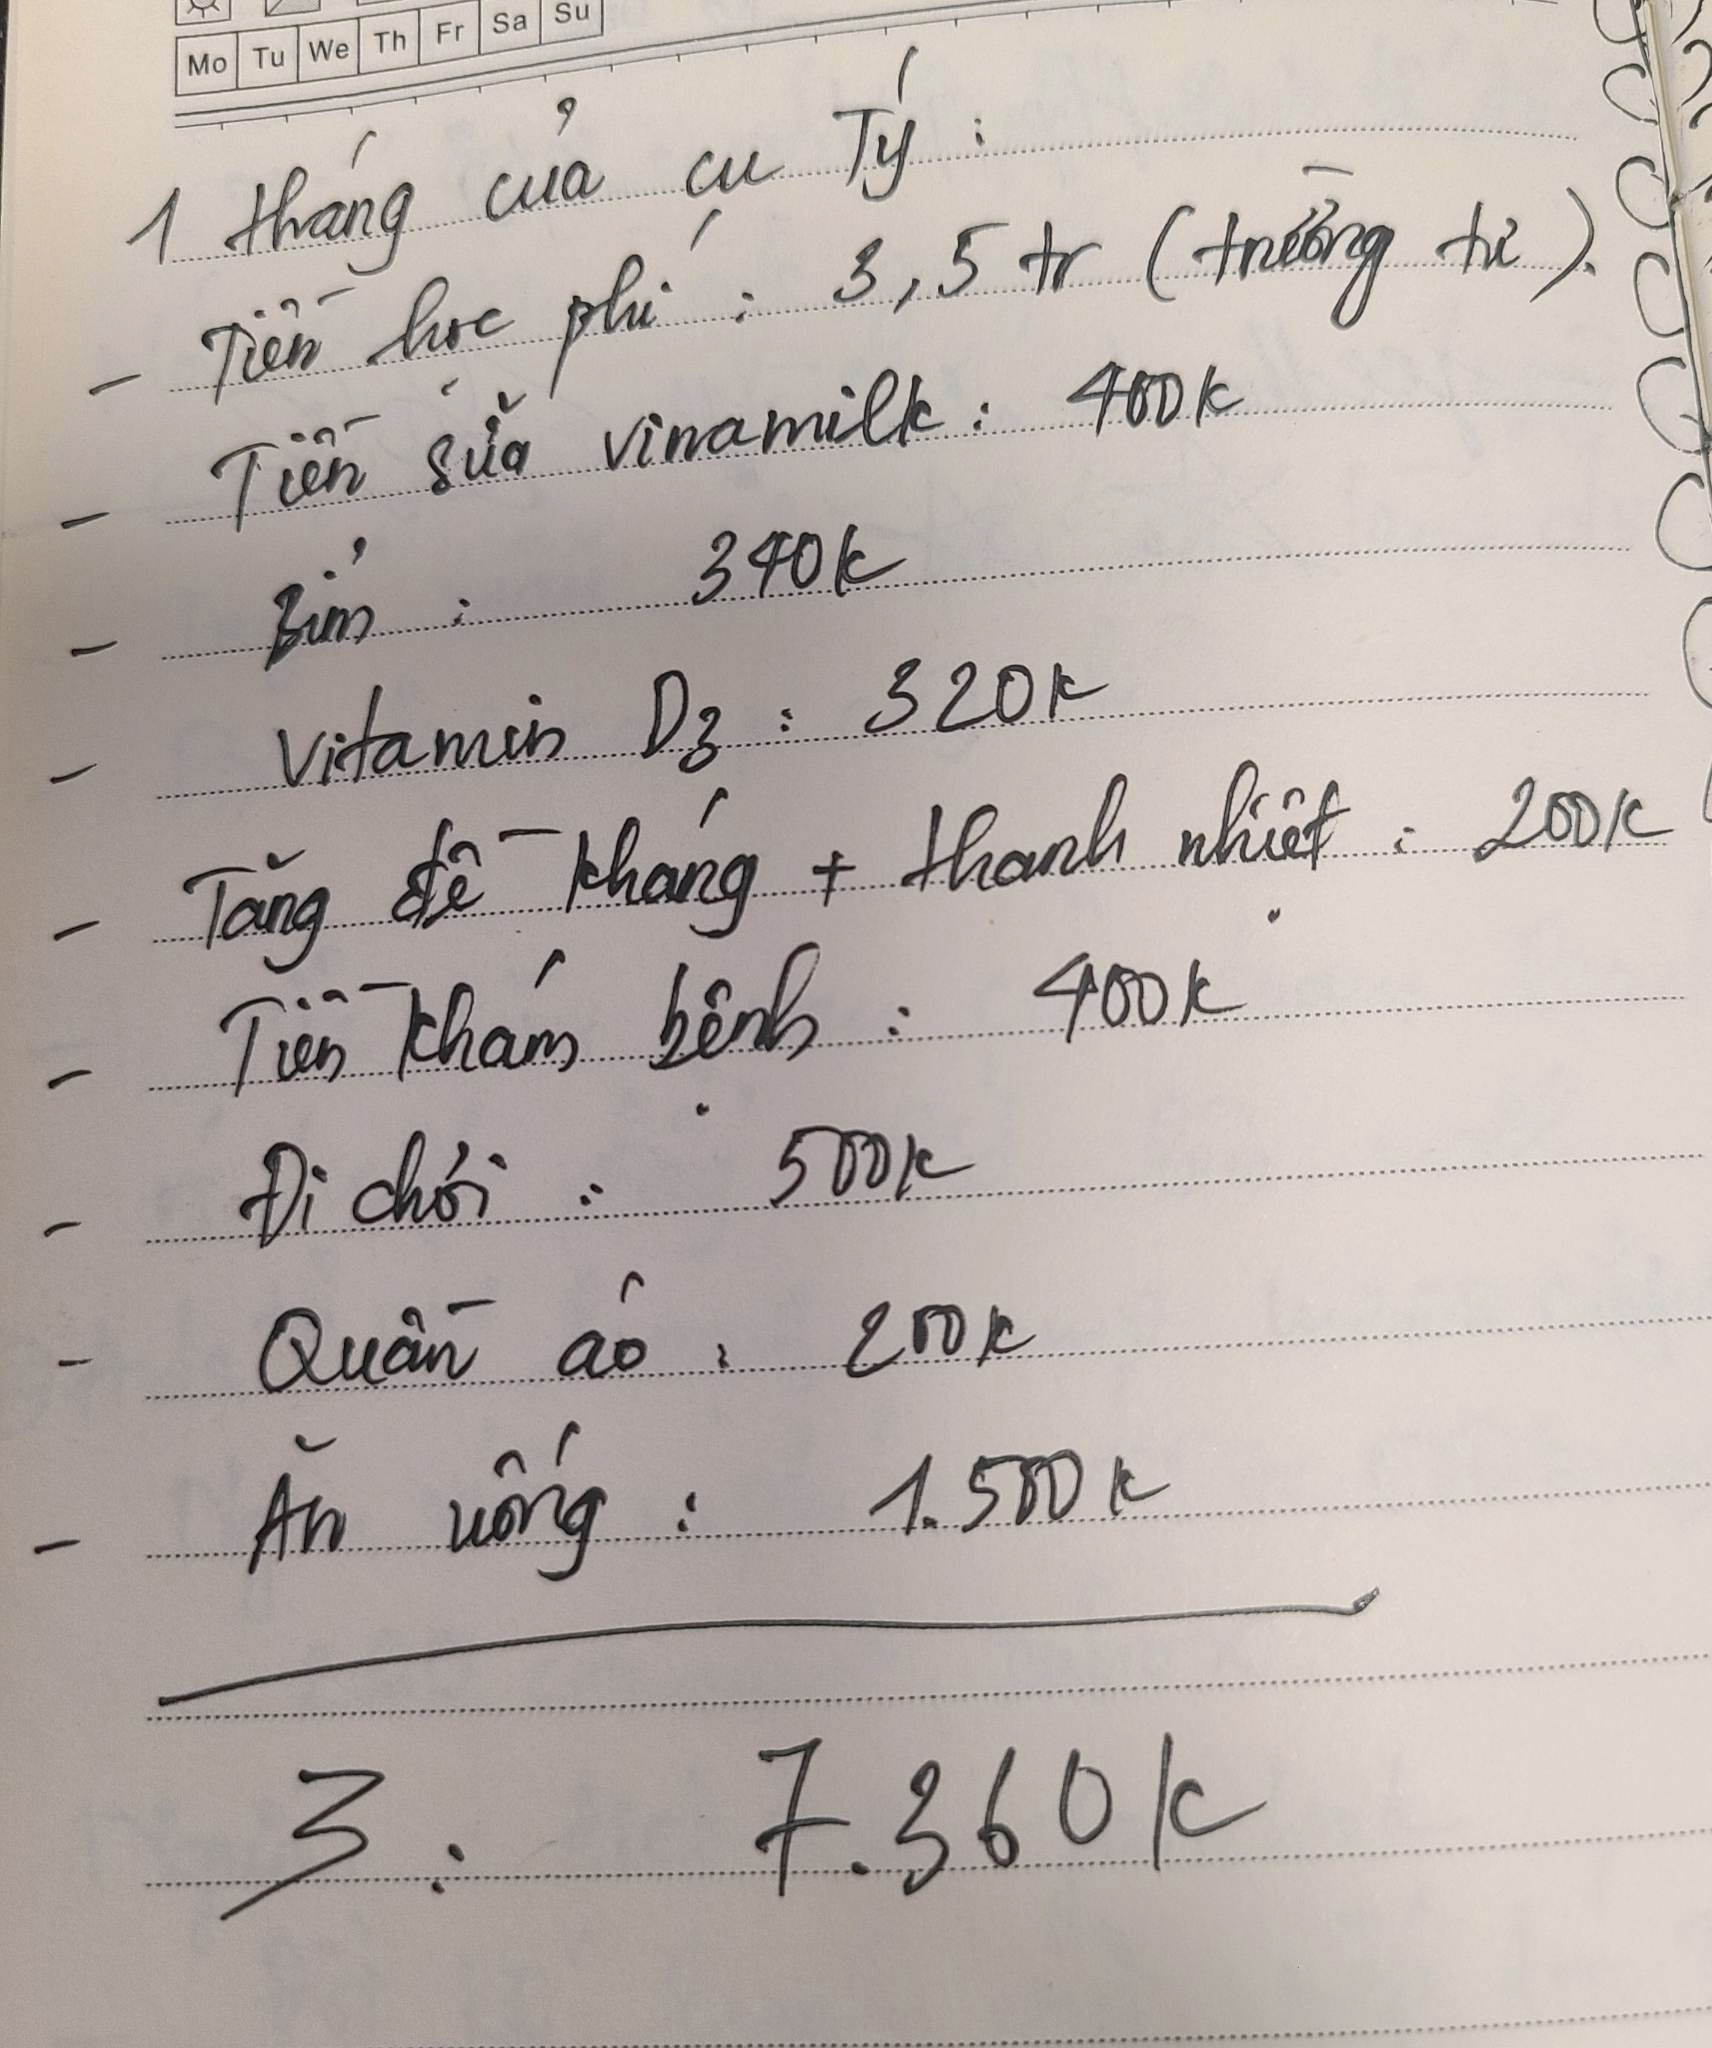 Mo Tu We Th Fr Sa Su
1 tháng của cu Tý :
- Tiền học phí : 3,5 tr (trường tư).
- Tiền sữa vinamilk : 400k
- Bỉm : 340k
- Vitamin D3 : 320k
- Tăng đề kháng + thanh nhiệt : 200k
- Tiền khám bệnh : 400k
- Đi chơi : 500k
- Quần áo : 200k
- Ăn uống : 1.500k
Σ : 7.360k